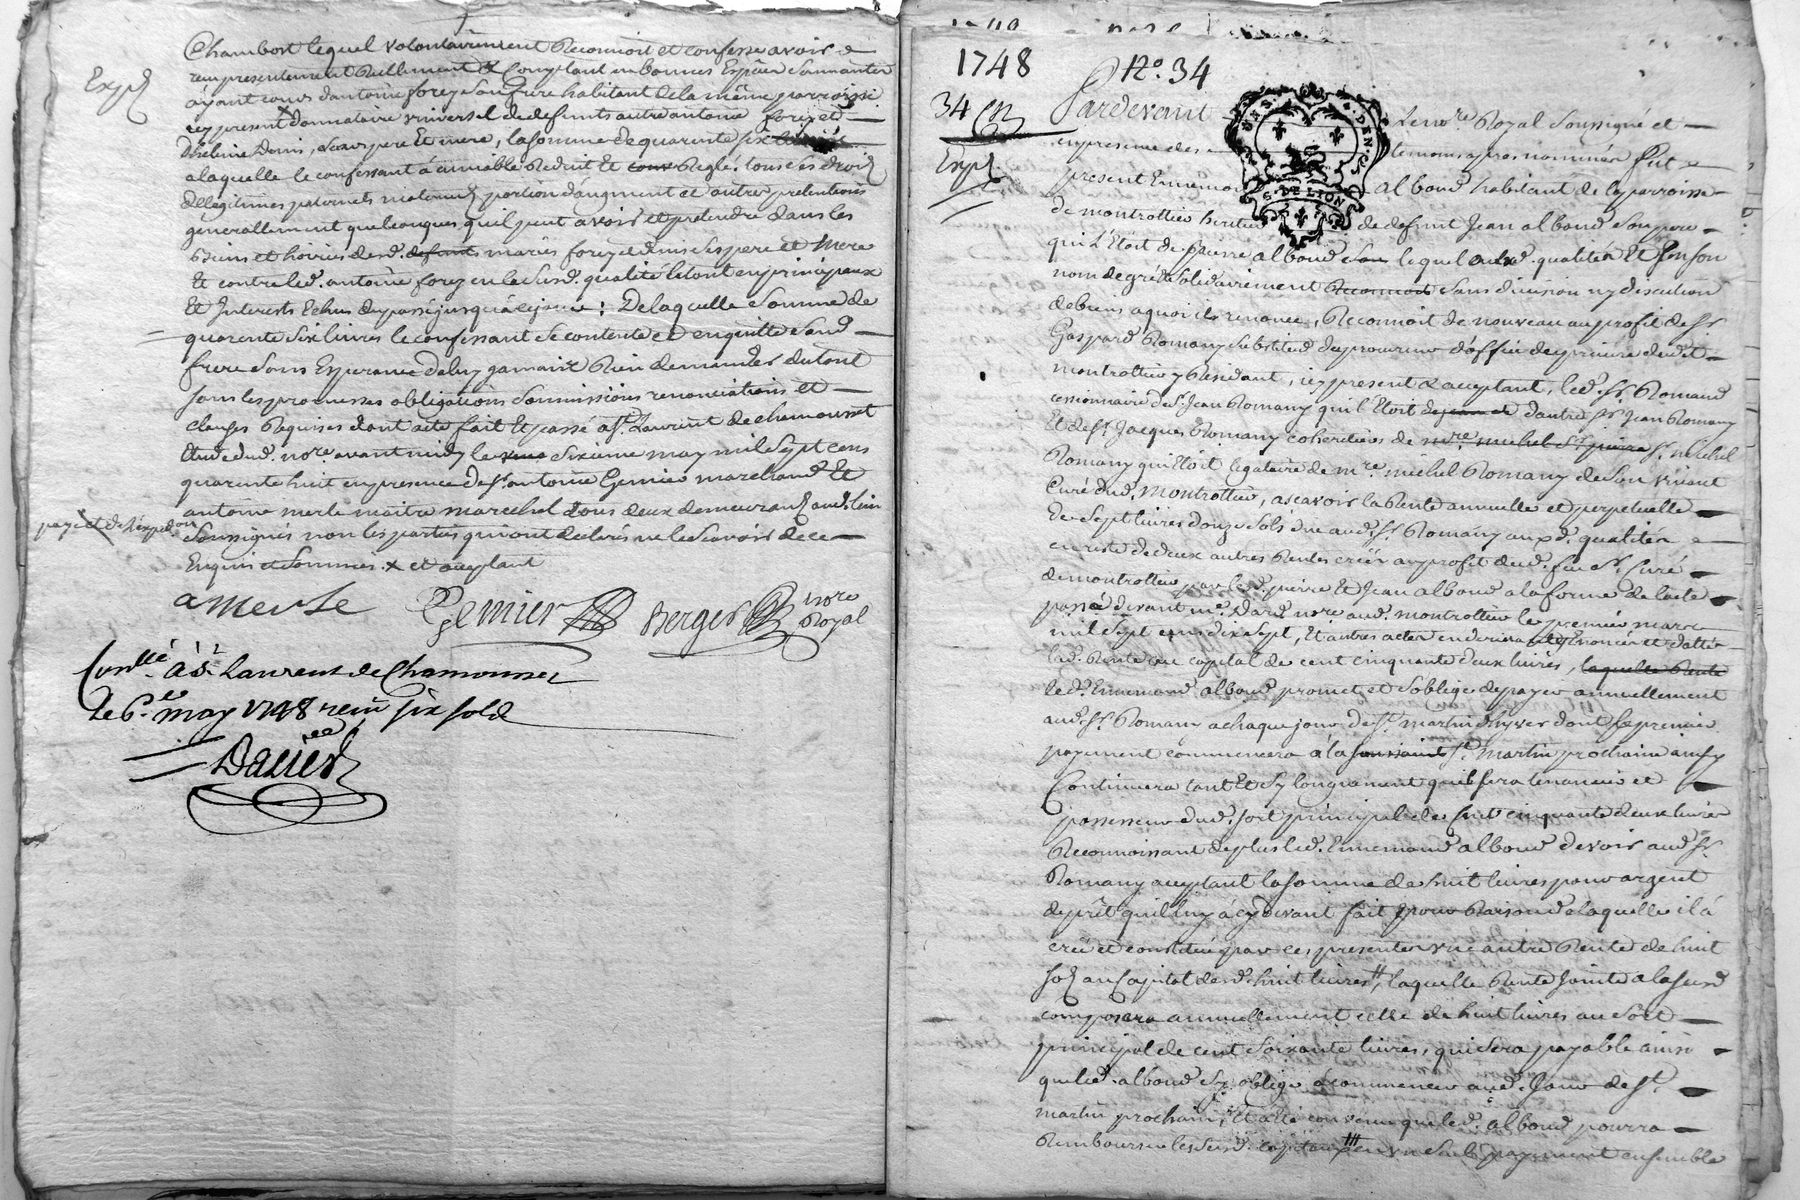 Chambost lequel volontairement Reconnoit et confesse avoir
reçu presentement Reellement & Comptant en bonnes Espèces Sonnantes
ayant cours d'antoine forey Son frere habitant de la même parroisse
icy present donnataire universel de defunts autre antoine forey et
Denis, Leurs pere Et mere, la somme de quarente six
a laquelle le confessant à amiablem Reduit Et Reglé tous ses droid
de legitimes paternels maternels portion d'augment et autres pretentions
generallement quelconques quil peut avoir et pretendre dans les
Biens et hoiries desd. defunts mariés forey et Denis Ses pere et Mere
Et contre led. antoine forey en la Susd. qualité et tant en principaux
Et Interests Echus du passé jusqu'à ce jour ; De laquelle Somme de
quarente Six livres le confessant Se contente et en quitte Sond.
frere Sans Esperance de luy jamais Rien demander du tout
sous les promesses obligations Soumissions renonciations et
clauses Requises dont acte fait Et passé a St. Laurent de chamousset
Etude dud. nore. avant midy le Sixieme may mil Sept cens
quarente huit en presence de sr. antoine Gemier marchand Et
antoine merle maitre marechal tous deux demeurant aud. lieu
Soussignés non les parties qui ont declaré ne le Scavoir de ce
Enquis et Sommés. x et acceptant
Expd
a Merle Gemier Berger nore Royal
Conllé. à St. Laurent de Chamousset
le 6e. may 1748 reçu six sols
1748 No. 34
34
Pardevant Le nore. Royal Soussigné et
Expd.
en presence des temoins apres nommés fut
present Ennemond alboud habitant de la parroisse
de montrottier heritier de defunt Jean alboud Son pere
qui L'Etoit de pierre alboud lequel auxd. qualités Et En Son
nom de gré et Solidairement Reconnoit Sans division ny discution
de biens a quoi ils renonce, Reconnoit de nouveau au profit de Sr.
Gaspard Romany Substitud du procureur d'office
montrottier y Residant, icy present & acceptant, led. Sr. Romand
cessionnaire de Sr. Jean Romany qui l'Etoit d'autre Sr. Jean Romany
Et de Sr. Jacques Romany coheritiers de mre. michel St. pierre Sr. michel
Romany qui Etoit legataire de mre. michel Romany de Son vivant
Curé dud. Montrottier, a scavoir la Rente annuelle et perpetuelle
de Sept livres douze Sols düe aud. Sr. Romany auxd. qualités
en reste de deux autres Rentes creées au profit dud. feu Sr. Curé
de montrottier par led. pierre Et Jean alboud a la forme de l'acte
passé devant me. Dard nore. aud. montrottier le premier mars
mil Sept cens dix Sept, Et autres actes en derivant Enoncés et dattés
lad. Rente au capital de cent cinquante deux livres, laquelle Rente
led. Ennemond alboud promet et S'oblige de payer annuellement
aud. Sr. Romany a chaque jour de St. martin d'hyver dont le premier
payement commencera à la toussaint St. Martin prochaine ainsy
Continuera tant Et Sy longuement quil Sera tenancier et
possesseur dud. Sort principal des cent cinquante deux livres
Reconnoissant de plus led. Ennemond alboud devoir aud. Sr.
Romany acceptant la Somme de huit livres pour argent
de prêt quil luy à cy devant fait pour Raison de laquelle il à
creé et constitué par ces presentes une autre Rente de huit
Sols au Capital desd. huit livres, laquelle Rente Jointe a la Susd.
composera annuellement celle de huit livres au Sort
principal de cent Soixante livres, qui Sera payable ainsi
que led. alboud S'y oblige à commencer aud. Jour de St.
martin prochain, Et a Eté convenu que led. alboud pourra
Rembourser lesd. capitaux en un Seul payement ensemble